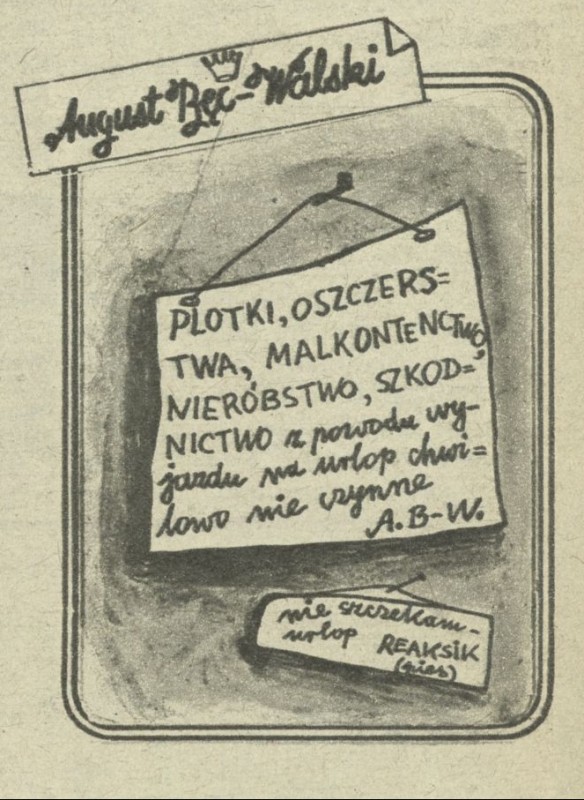 August Bęc-Walski
PLOTKI, OSZCZERS=
TWA, MALKONTENCTWO,
NIERÓBSTWO, SZKOD=
NICTWO z powodu wy-
jazdu na urlop chwi=
lowo nie czynne
A. B-W.
nie szczekam -
urlop REAKSIK
(pies)